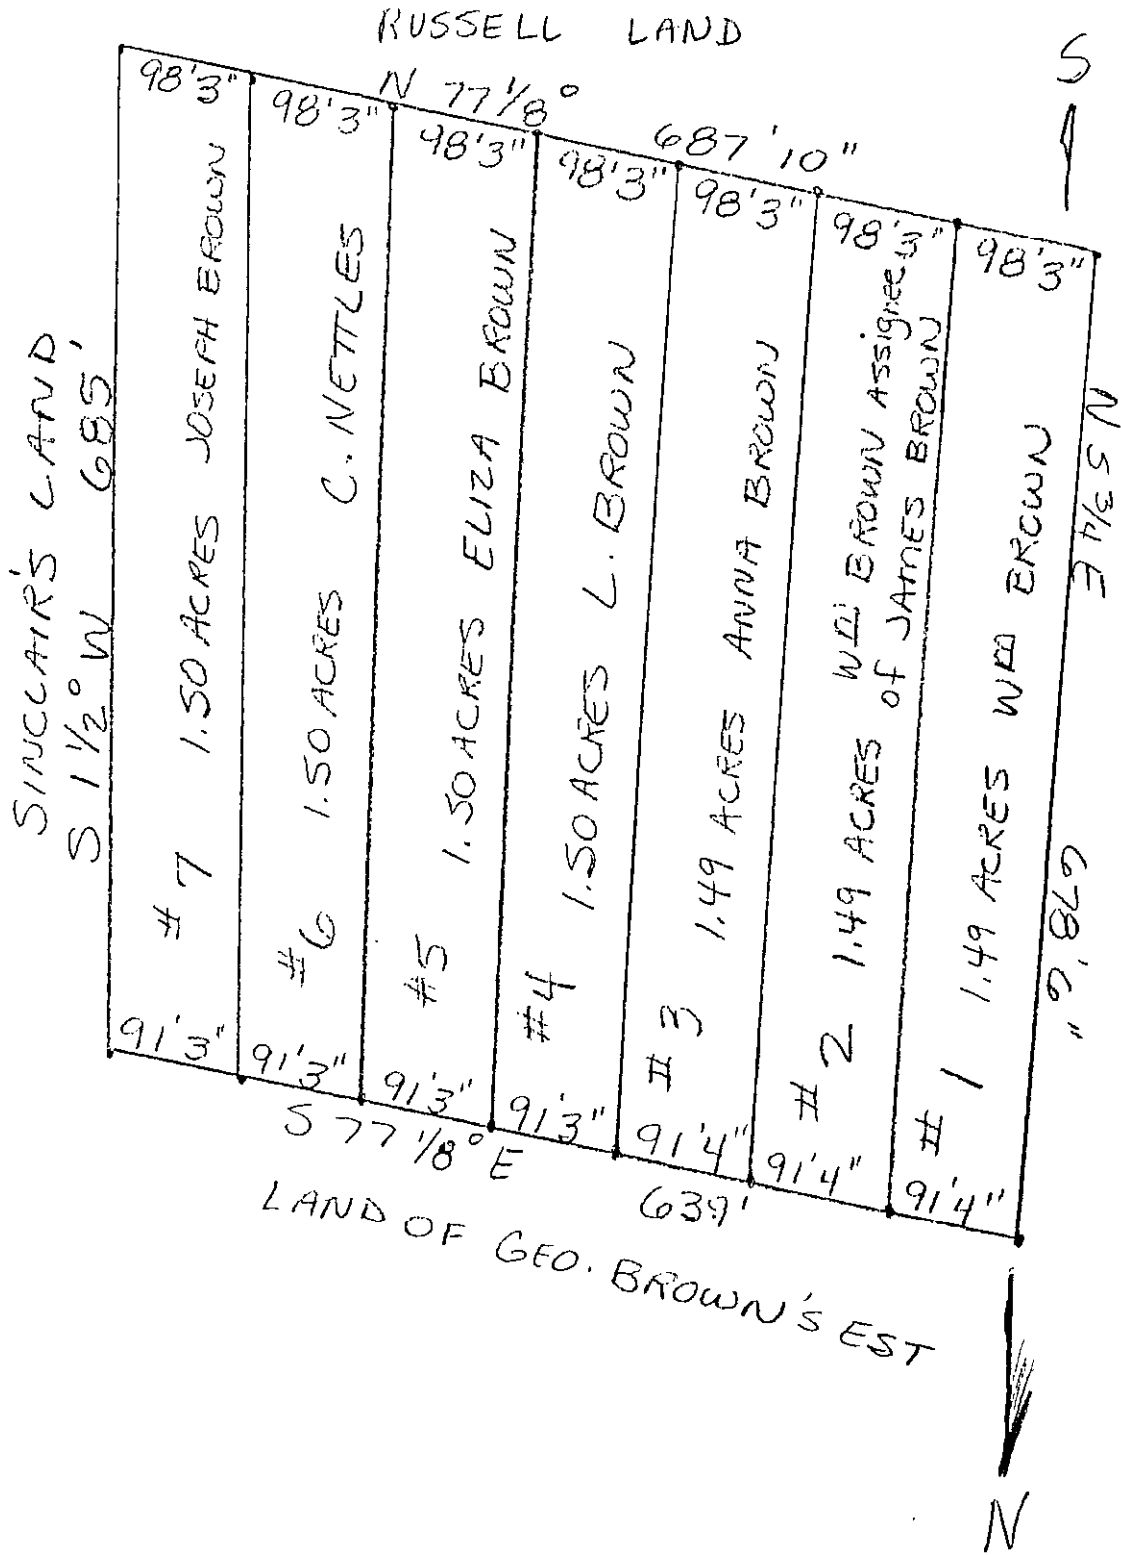 RUSSELL LAND
S
N 77 1/8°
687'10"
98'3"
98'3"
98'3"
98'3"
98'3"
98'3"
98'3"
SINCLAIR'S LAND
S 1 1/2° W 685'
#7 1.50 ACRES JOSEPH BROWN
#6 1.50 ACRES C. NETTLES
#5 1.50 ACRES ELIZA BROWN
#4 1.50 ACRES L. BROWN
#3 1.49 ACRES ANNA BROWN
#2 1.49 ACRES WM BROWN Assignee
of JAMES BROWN
#1 1.49 ACRES WM BROWN
N 5 3/4 E
678'6"
91'3"
91'3"
91'3"
91'3"
91'4"
91'4"
91'4"
S 77 1/8° E
639'
LAND OF GEO. BROWN'S EST
N